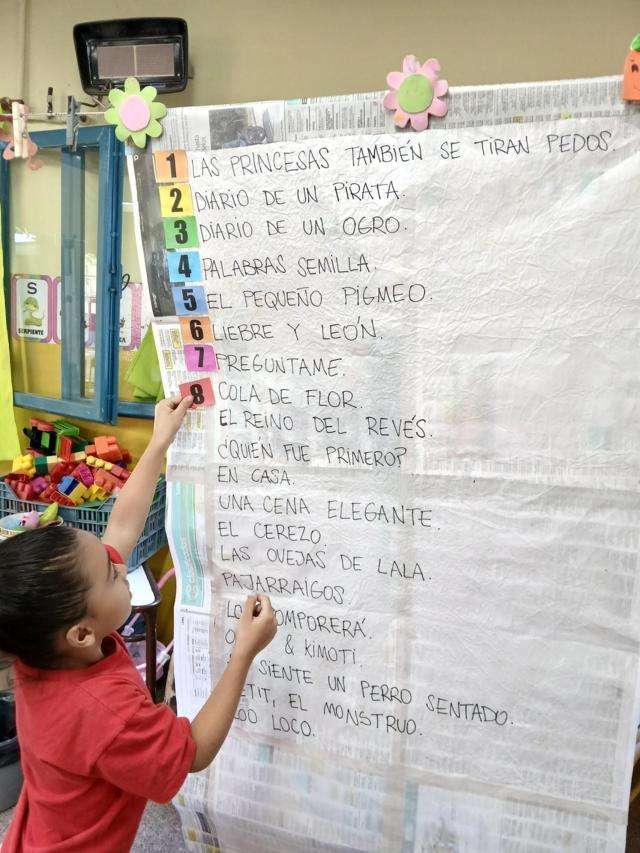 1 LAS PRINCESAS TAMBIÉN SE TIRAN PEDOS.
2 DIARIO DE UN PIRATA.
3 DIARIO DE UN OGRO.
4 PALABRAS SEMILLA.
5 EL PEQUEÑO PIGMEO.
6 LIEBRE Y LEÓN.
7 PREGUNTAME.
8 COLA DE FLOR.
EL REINO DEL REVÉS.
¿QUIÉN FUE PRIMERO?
EN CASA.
UNA CENA ELEGANTE.
EL CEREZO.
LAS OVEJAS DE LALA.
PAJARRAIGOS.
& KIMOTI.
SIENTE UN PERRO SENTADO.
EL MONSTRUO.
LOCO.
S
SERPIENTE